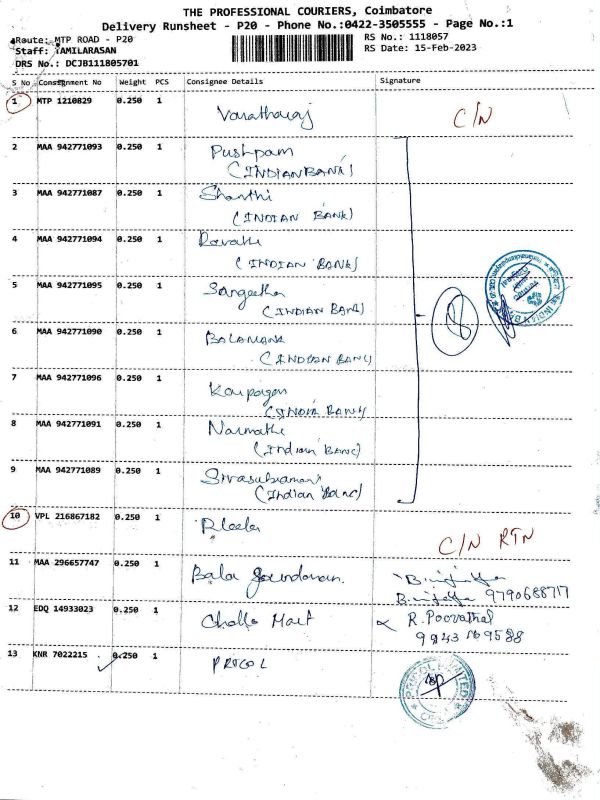 THE PROFESSIONAL COURIERS, Coimbatore
Delivery Runsheet - P20 - Phone No.:0422-3505555 - Page No.:1
Route: MTP ROAD - P20
Staff: TAMILARASAN
DRS No.: DCJB111805701
RS No.: 1118057
RS Date: 15-Feb-2023
S No Consignment No Weight PCS Consignee Details Signature
1 MTP 1210829 0.250 1 Varatharaj C/N
2 MAA 942771093 0.250 1 Pushpam
(INDIAN BANK)
3 MAA 942771087 0.250 1 Shanthi
(INDIAN BANK)
4 MAA 942771094 0.250 1 Revathi
(INDIAN BANK)
5 MAA 942771095 0.250 1 Sangeetha
(INDIAN BANK)
8
6 MAA 942771090 0.250 1
(INDIAN BANK)
7 MAA 942771096 0.250 1
(INDIA BANK)
8 MAA 942771091 0.250 1 Narmatha
(Indian BANC)
9 MAA 942771089 0.250 1 Sivasubramani
(Indian Banc)
10 VPL 216867182 0.250 1 C/N RTN
11 MAA 296657747 0.250 1 Bala Goundanan.
9790688717
12 EDQ 14933023 0.250 1 Challa Mart R. Poovathal
13 KNR 7022215 0.250 1 PRICOL
PRICOL LIMITED